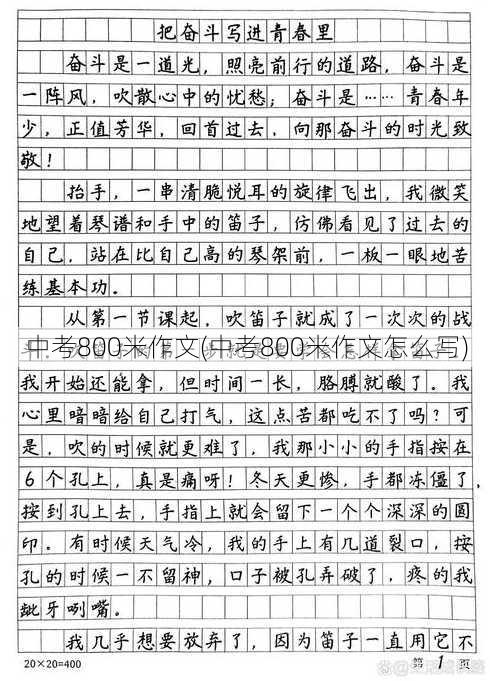 把奋斗写进青春里
奋斗是一道光，照亮前行的道路，奋斗是
一阵风，吹散心中的忧愁；奋斗是……青春年
少，正值芳华，回首过去，向那奋斗的时光致
敬！
抬手，一串清脆悦耳的旋律飞出，我微笑
地望着琴谱和手中的笛子，仿佛看见了过去的
自己，站在比自己高的琴架前，一板一眼地苦
练基本功。
从第一节课起，吹笛子就成了一次次的战
中考800米作文(中考800米作文怎么写)
我开始还能拿，但时间一长，胳膊就酸了。我
心里暗暗给自己打气，这点苦都吃不了吗？可
是，吹的时候就更难了，我那小小的手指按在
6个孔上，真是痛呀！冬天更惨，手都冻僵了，
按到孔上去，手指上就会留下一个个深深的圆
印。有时候天气冷，我的手上有几道裂口，按
孔的时候一不留神，口子被孔弄破了，疼的我
龇牙咧嘴。
我几乎想要放弃了，因为笛子一直用它不
20×20=400
第1页